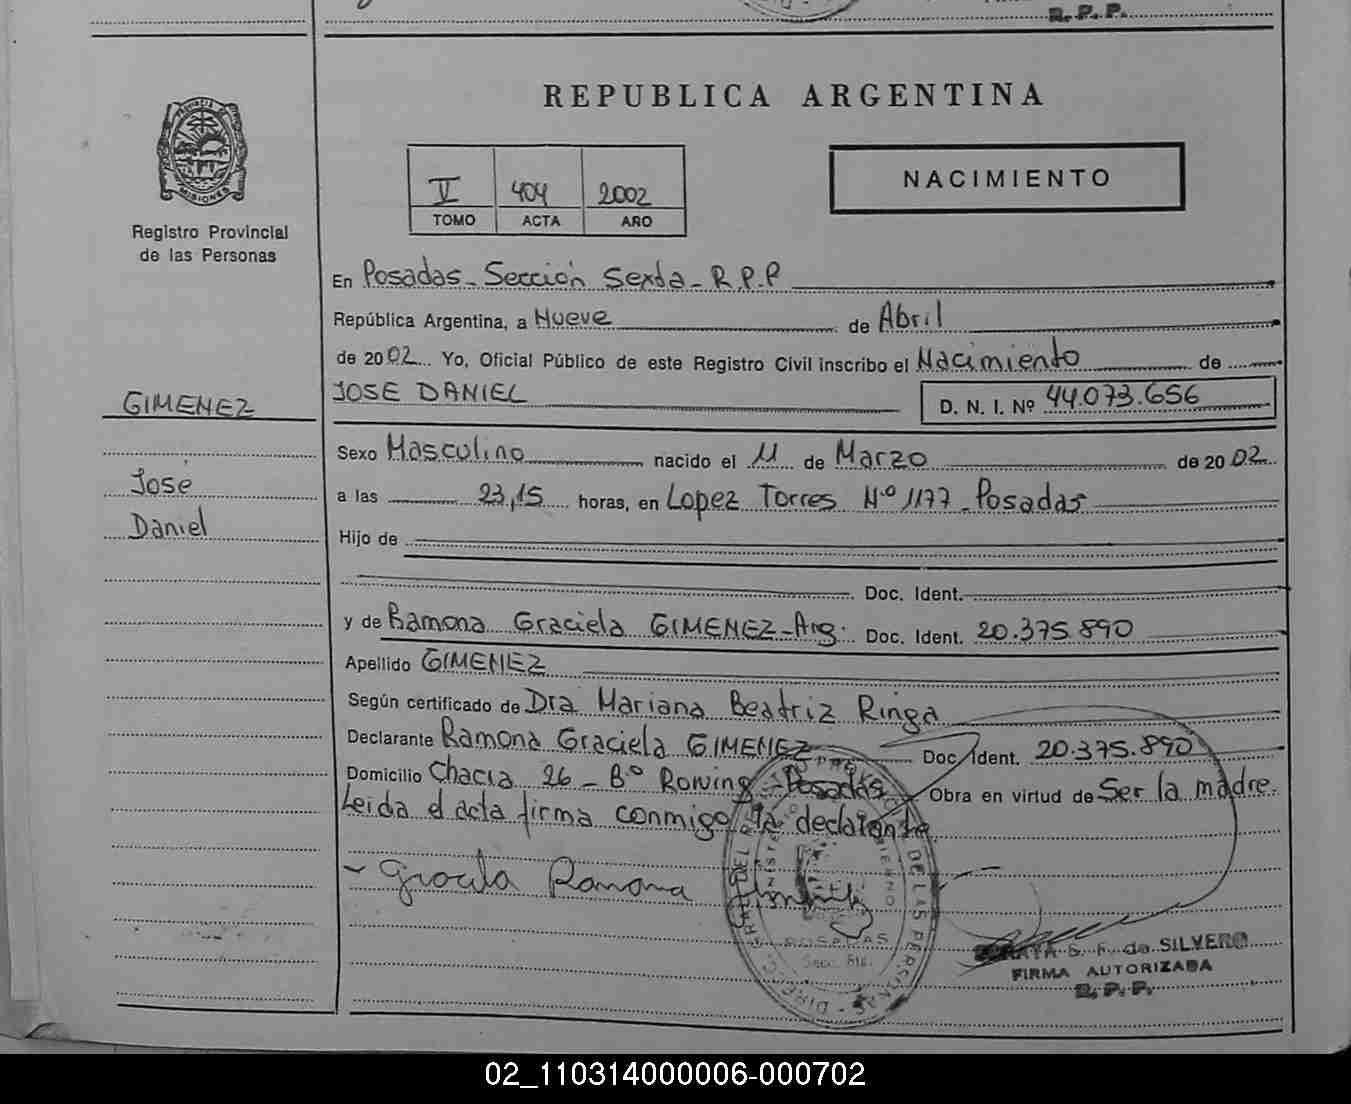 R. P. P.
REPUBLICA ARGENTINA
V 404 2002
TOMO ACTA AÑO
NACIMIENTO
MISIONES
Registro Provincial
de las Personas
En Posadas - Sección Sexta - R.P.P
República Argentina, a Nueve de Abril
de 2002 Yo, Oficial Público de este Registro Civil inscribo el Nacimiento de
JOSE DANIEL D. N. I. Nº 44.073.656
GIMENEZ
José
Daniel
Sexo Masculino nacido el 11 de Marzo de 2002
a las 23,15 horas, en Lopez Torres Nº 1177 - Posadas
Hijo de
Doc. Ident.
y de Ramona Graciela GIMENEZ - Arg. Doc. Ident. 20.375.890
Apellido GIMENEZ
Según certificado de Dra Mariana Beatriz Ringa
Declarante Ramona Graciela GIMENEZ Doc. Ident. 20.375.890
Domicilio Chacra 26 - Bº Rowing - Posadas Obra en virtud de Ser la madre.
Leida el acta firma conmigo la declarante
Ramona
POSADAS
de SILVERO
FIRMA AUTORIZADA
R. P. P.
02_110314000006-000702